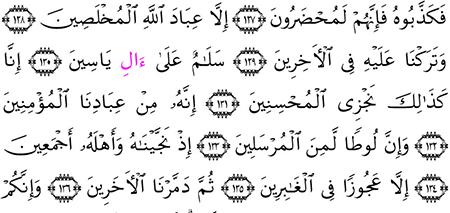 فَكَذَّبُوهُ فَإِنَّهُمْ لَمُحْضَرُونَ ﴿١٢٧﴾ إِلَّا عِبَادَ اللَّهِ الْمُخْلَصِينَ ﴿١٢٨﴾
وَتَرَكْنَا عَلَيْهِ فِى الْأَخِرِينَ ﴿١٢٩﴾ سَلَامٌ عَلَىٰ ءَالِ يَاسِينَ ﴿١٣٠﴾ إِنَّا
كَذَٰلِكَ نَجْزِى الْمُحْسِنِينَ ﴿١٣١﴾ إِنَّهُ مِنْ عِبَادِنَا الْمُؤْمِنِينَ
﴿١٣٢﴾ وَإِنَّ لُوطًا لَّمِنَ الْمُرْسَلِينَ ﴿١٣٣﴾ إِذْ نَجَّيْنَاهُ وَأَهْلَهُ أَجْمَعِينَ
﴿١٣٤﴾ إِلَّا عَجُوزًا فِى الْغَابِرِينَ ﴿١٣٥﴾ ثُمَّ دَمَّرْنَا الْأَخَرِينَ ﴿١٣٦﴾ وَإِنَّكُمْ